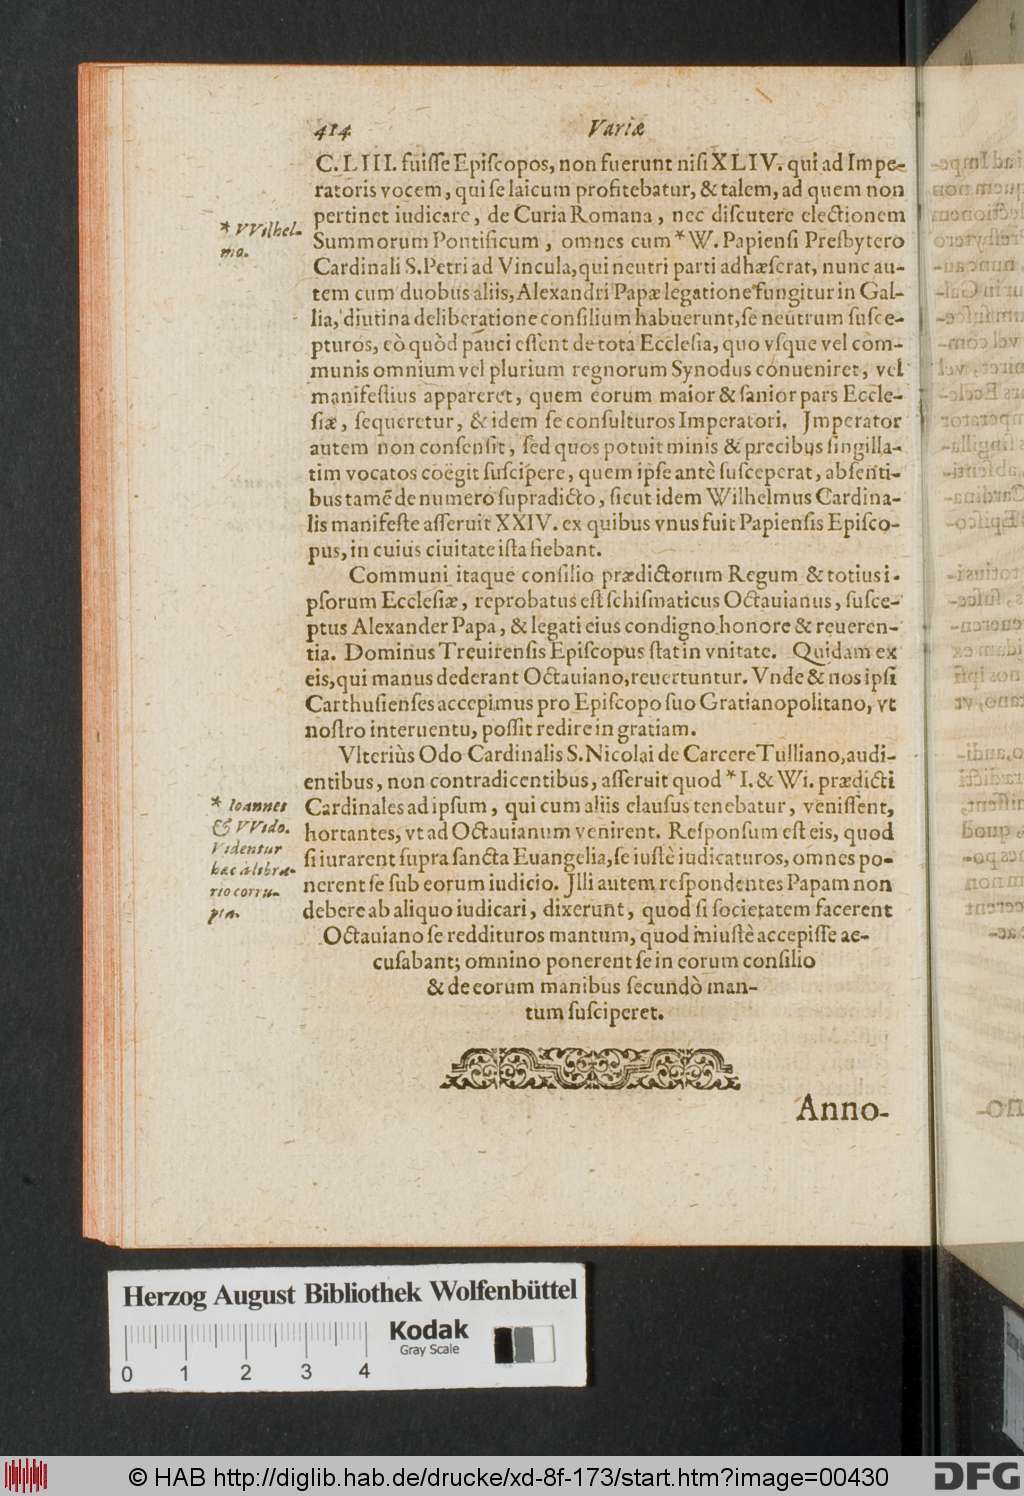 414 Variæ
C.LIII. fuiſſe Epiſcopos, non fuerunt niſi XLIV. qui ad Impe-
ratoris vocem, qui ſe laicum profitebatur, & talem, ad quem non
pertinet iudicare, de Curia Romana, nec diſcutere electionem
Summorum Pontificum, omnes cum *W. Papienſi Preſbytero
Cardinali S. Petri ad Vincula, qui neutri parti adhæſerat, nunc au-
tem cum duobus aliis, Alexandri Papæ legatione fungitur in Gal-
lia, diutina deliberatione conſilium habuerunt, ſe neutrum ſuſce-
pturos, eò quòd pauci eſſent de tota Eccleſia, quo vſque vel com-
munis omnium vel plurium regnorum Synodus conueniret, vel
manifeſtius appareret, quem eorum maior & ſanior pars Eccle-
ſiæ, ſequeretur, & idem ſe conſulturos Imperatori. Jmperator
autem non conſenſit, ſed quos potuit minis & precibus ſingilla-
tim vocatos coëgit ſuſcipere, quem ipſe antè ſuſceperat, abſenti-
bus tamẽ de numero ſupradicto, ſicut idem Wilhelmus Cardina-
lis manifeſte aſſeruit XXIV. ex quibus vnus fuit Papienſis Epiſco-
pus, in cuius ciuitate iſta fiebant.
Communi itaque conſilio prædictorum Regum & totius i-
pſorum Eccleſiæ, reprobatus eſt ſchiſmaticus Octauianus, ſuſce-
ptus Alexander Papa, & legati eius condigno honore & reueren-
tia. Dominus Treuirenſis Epiſcopus ſtat in vnitate. Quidam ex
eis, qui manus dederant Octauiano, reuertuntur. Vnde & nos ipſi
Carthuſienſes accepimus pro Epiſcopo ſuo Gratianopolitano, vt
noſtro interuentu, poſſit redire in gratiam.
Vlteriùs Odo Cardinalis S. Nicolai de Carcere Tulliano, audi-
entibus, non contradicentibus, aſſeruit quod *I. & Wi. prædicti
Cardinales ad ipſum, qui cum aliis clauſus tenebatur, veniſſent,
hortantes, vt ad Octauianum venirent. Reſponſum eſt eis, quod
ſi iurarent ſupra ſancta Euangelia, ſe iuſtè iudicaturos, omnes po-
nerent ſe ſub eorum iudicio. Jlli autem reſpondentes Papam non
debere ab aliquo iudicari, dixerunt, quod ſi ſocietatem facerent
Octauiano ſe reddituros mantum, quod iniuſtè accepiſſe ac-
cuſabant; omnino ponerent ſe in eorum conſilio
& de eorum manibus ſecundò man-
tum ſuſciperet.
Anno-
* VVilhel-
mo.
* Ioannes
& VVido.
Videntur
hæc à libra-
rio corru-
pta.
Herzog August Bibliothek Wolfenbüttel
Kodak
Gray Scale
0 1 2 3 4
© HAB http://diglib.hab.de/drucke/xd-8f-173/start.htm?image=00430
DFG